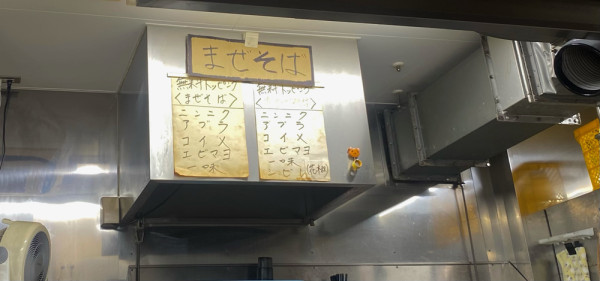 まぜそば
無料トッピング
〈まぜそば〉
ニンニク
アブラ
コイメ
エビマヨ
一味
無料トッピング
ニンニク
アブラ
コイメ
エビマヨ
一味
シビレ(花椒)